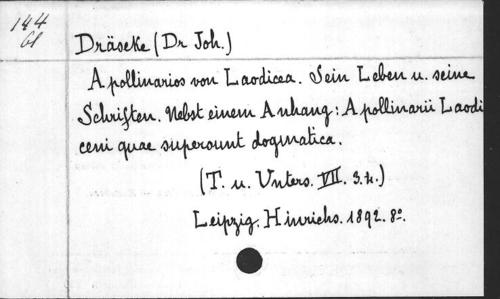 144
61
Dräseke (Dr Joh.)
Apollinarios von Laodicea. Sein Leben u. seine
Schriften. Nebst einem Anhang: Apollinarii Laodi
ceni quae supersunt dogmatica.
(T. u. Unters. VII. 3.4.)
Leipzig. Hinrichs. 1892. 8º.